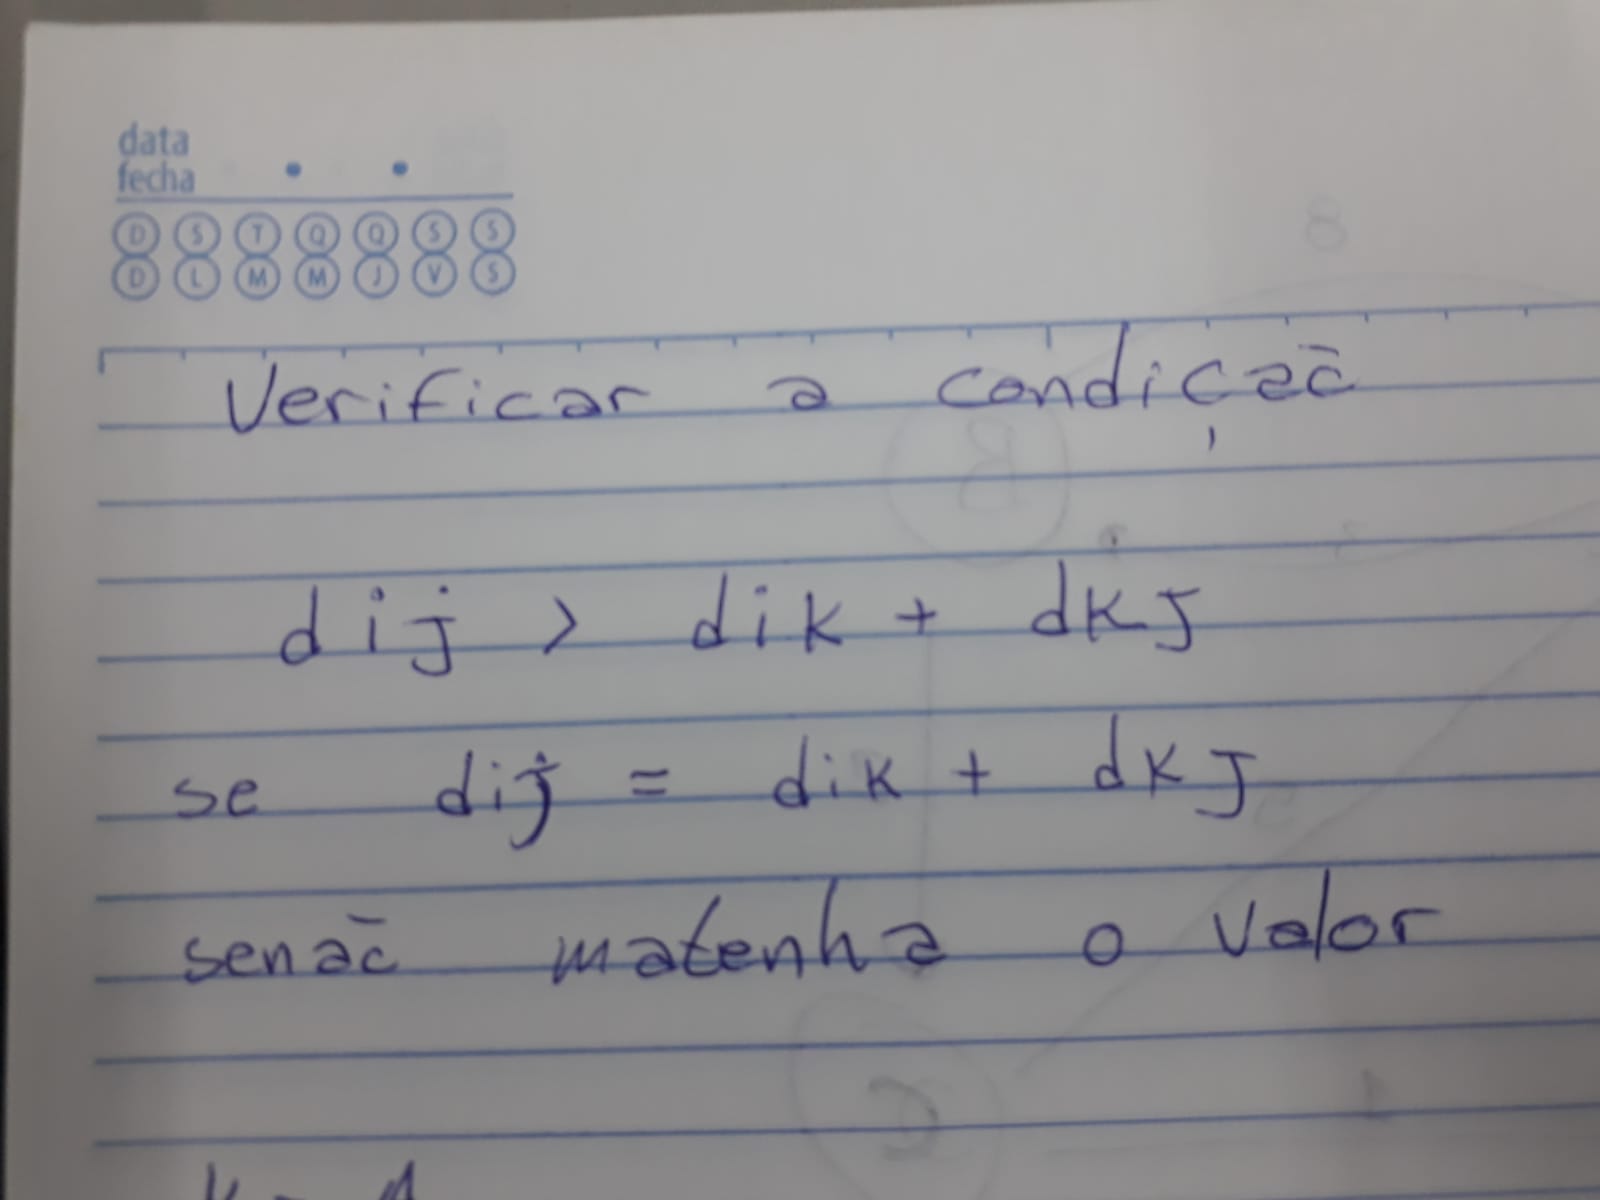 data
fecha
D S T Q Q S S
D L M M J V S
Verificar a condição
dij > dik + dkj
se dij = dik + dkj
senão matenha o valor